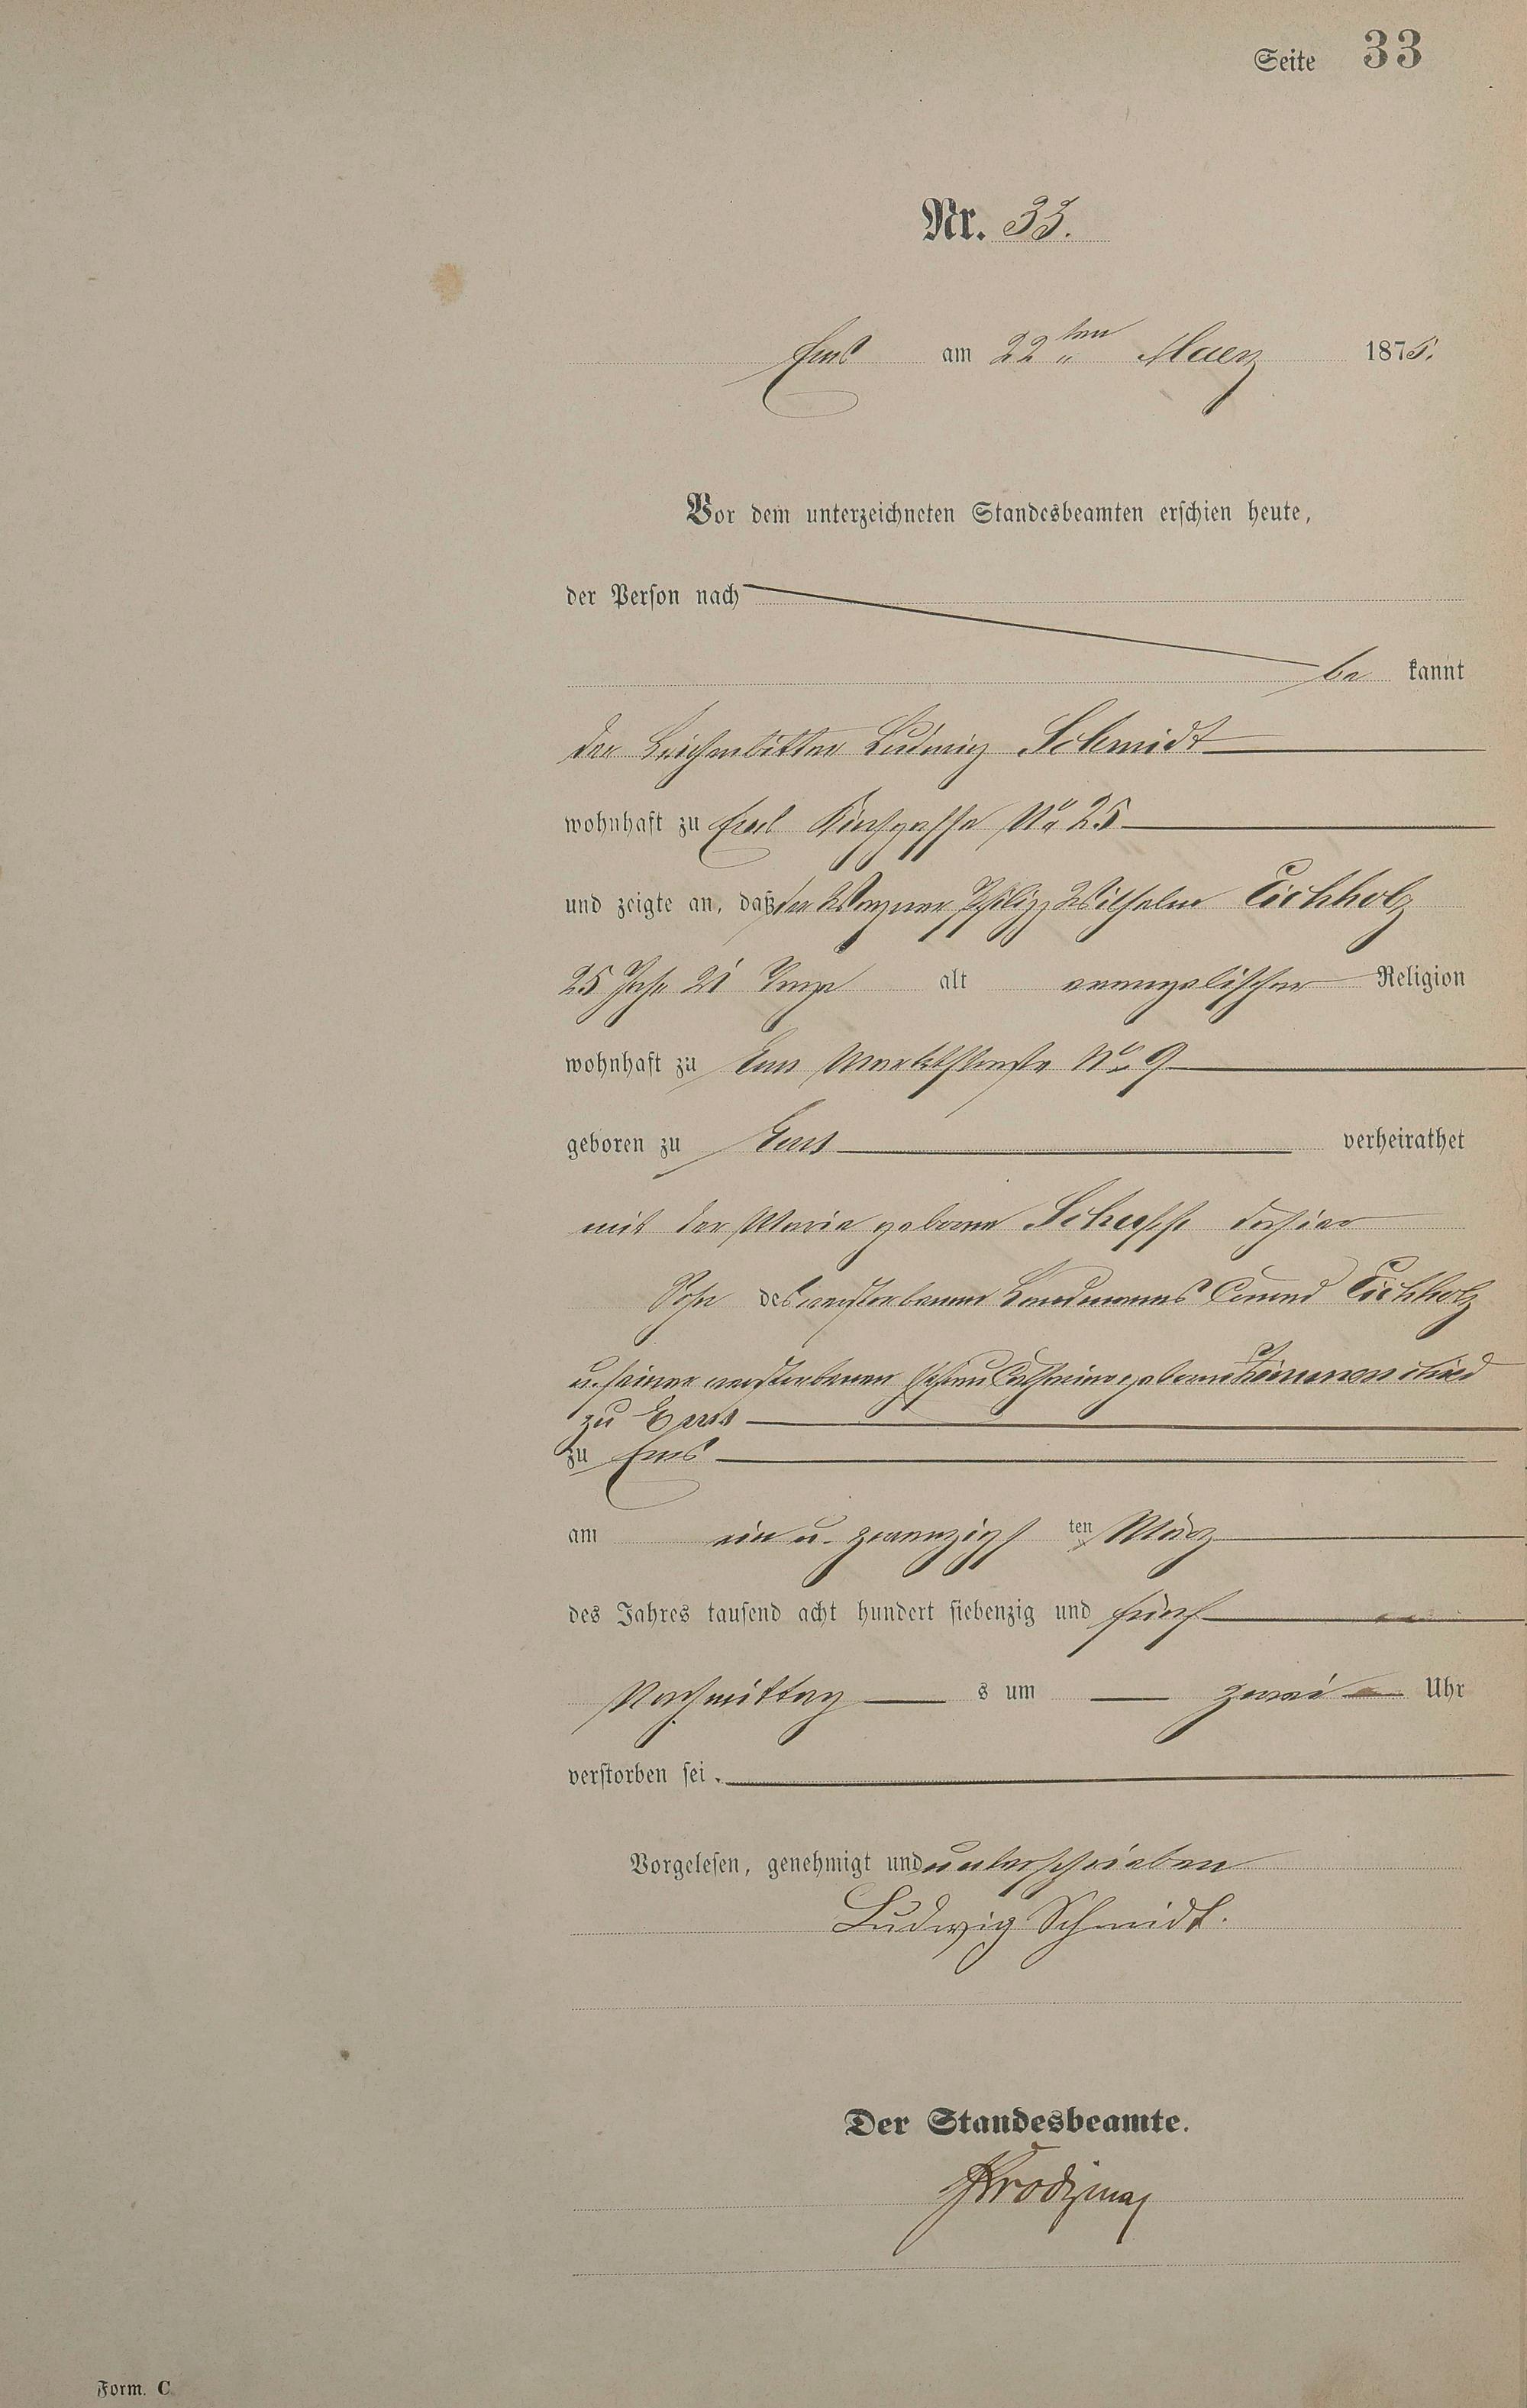 Seite 33
Nr. 33.
Ems am 22ten Maerz 1875.
Vor dem unterzeichneten Standesbeamten erschien heute,
der Person nach
be kannt
der Leichenbitter Ludwig Schmidt
wohnhaft zu Ems Kirchgasse No 25
und zeigte an, daß der Wagner Philipp Wilhelm Eichholz
25 Jahr 21 Tage alt evangelischer Religion
wohnhaft zu Ems Marktstraße No 9
geboren zu Ems verheirathet
mit der Maria geborne Schupp dahier
Sohn des verstorbenen Landmanns Conrad Eichholz
u. seiner verstorbenen Ehefrau Catharine geborne
zu Ems
zu Ems
am ein u. zwanzigs ten März
des Jahres tausend acht hundert siebenzig und fünf
Nachmittag s um zwei Uhr
verstorben sei.
Vorgelesen, genehmigt und unterschrieben
Ludwig Schmidt.
Der Standesbeamte.
Form. C